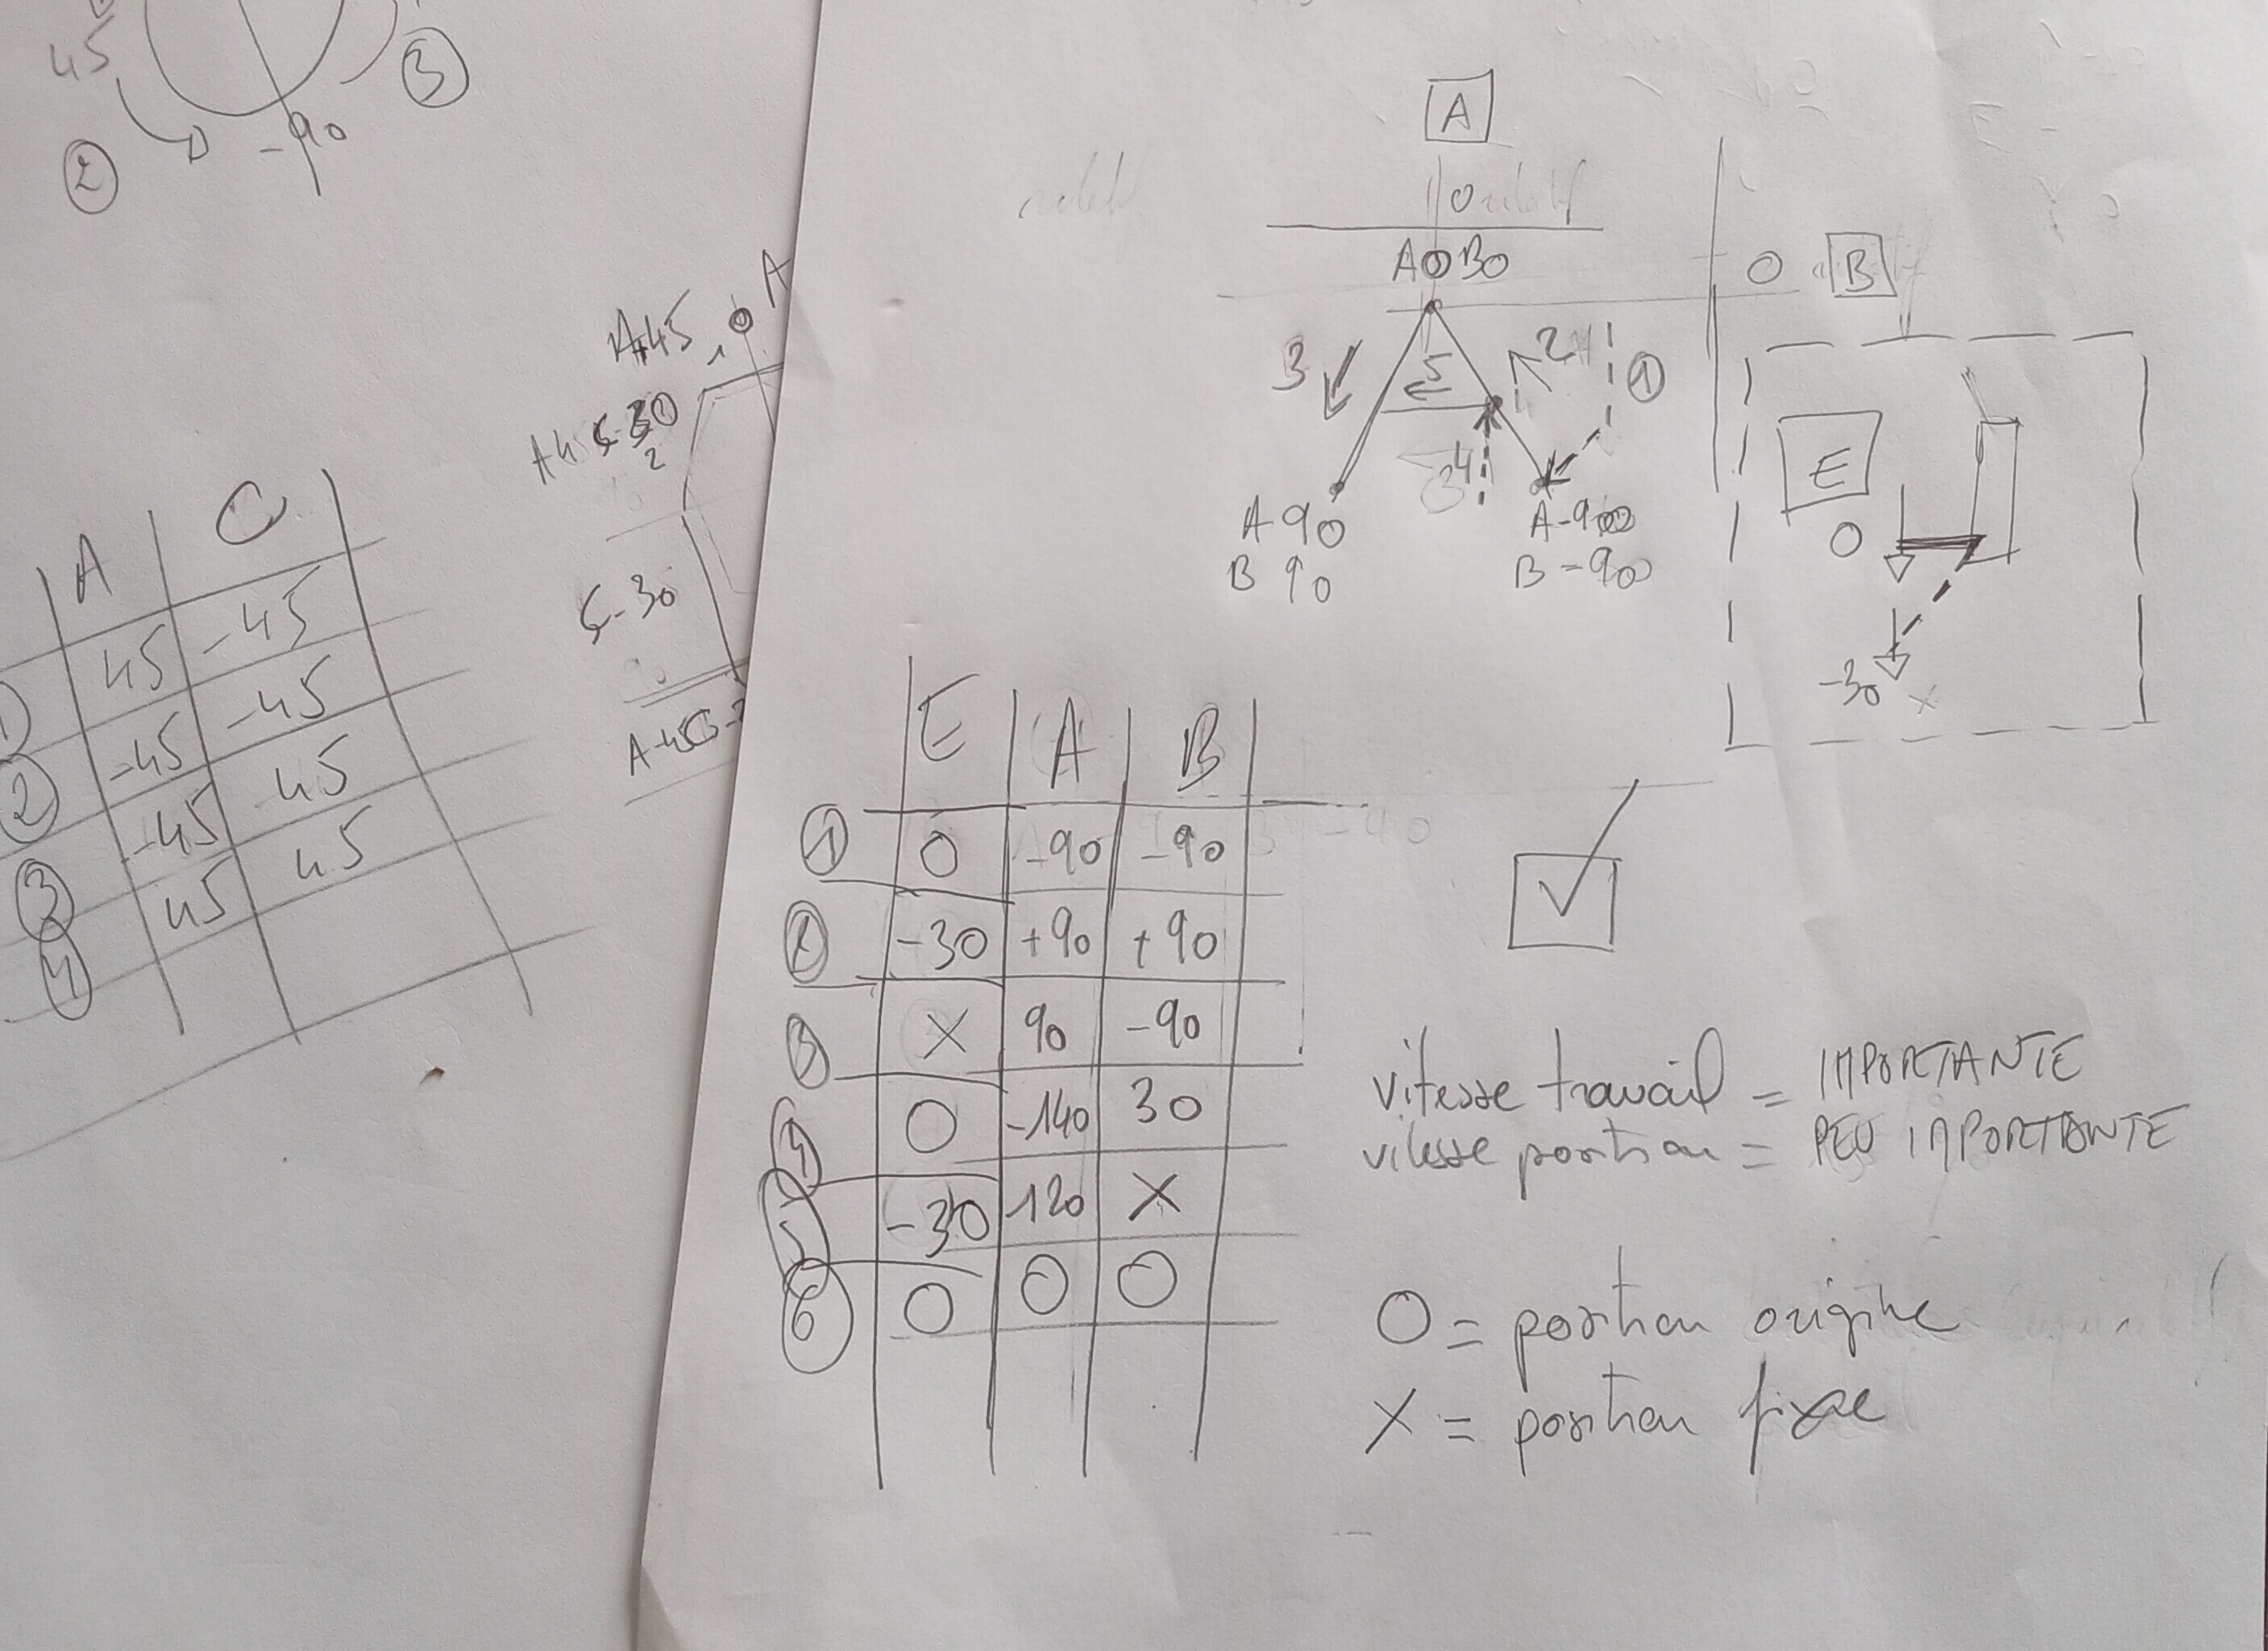 45
-90
②
③
A+45
1
A
2
C-30
A C
① 45 -45
② -45 -45
③ -45 45
④ 45 45
A
0
A0 B0
0 B
3
5
2
①
4
A-90
B 90
B -90
E
0
-30
E A B
① 0 -90 -90
② -30 +90 +90
③ X 90 -90
④ 0 -140 30
⑤ -30 120 X
⑥ 0 0 0
vitesse travail = IMPORTANTE
vitesse position = PEU IMPORTANTE
O = position origine
X = position fixe